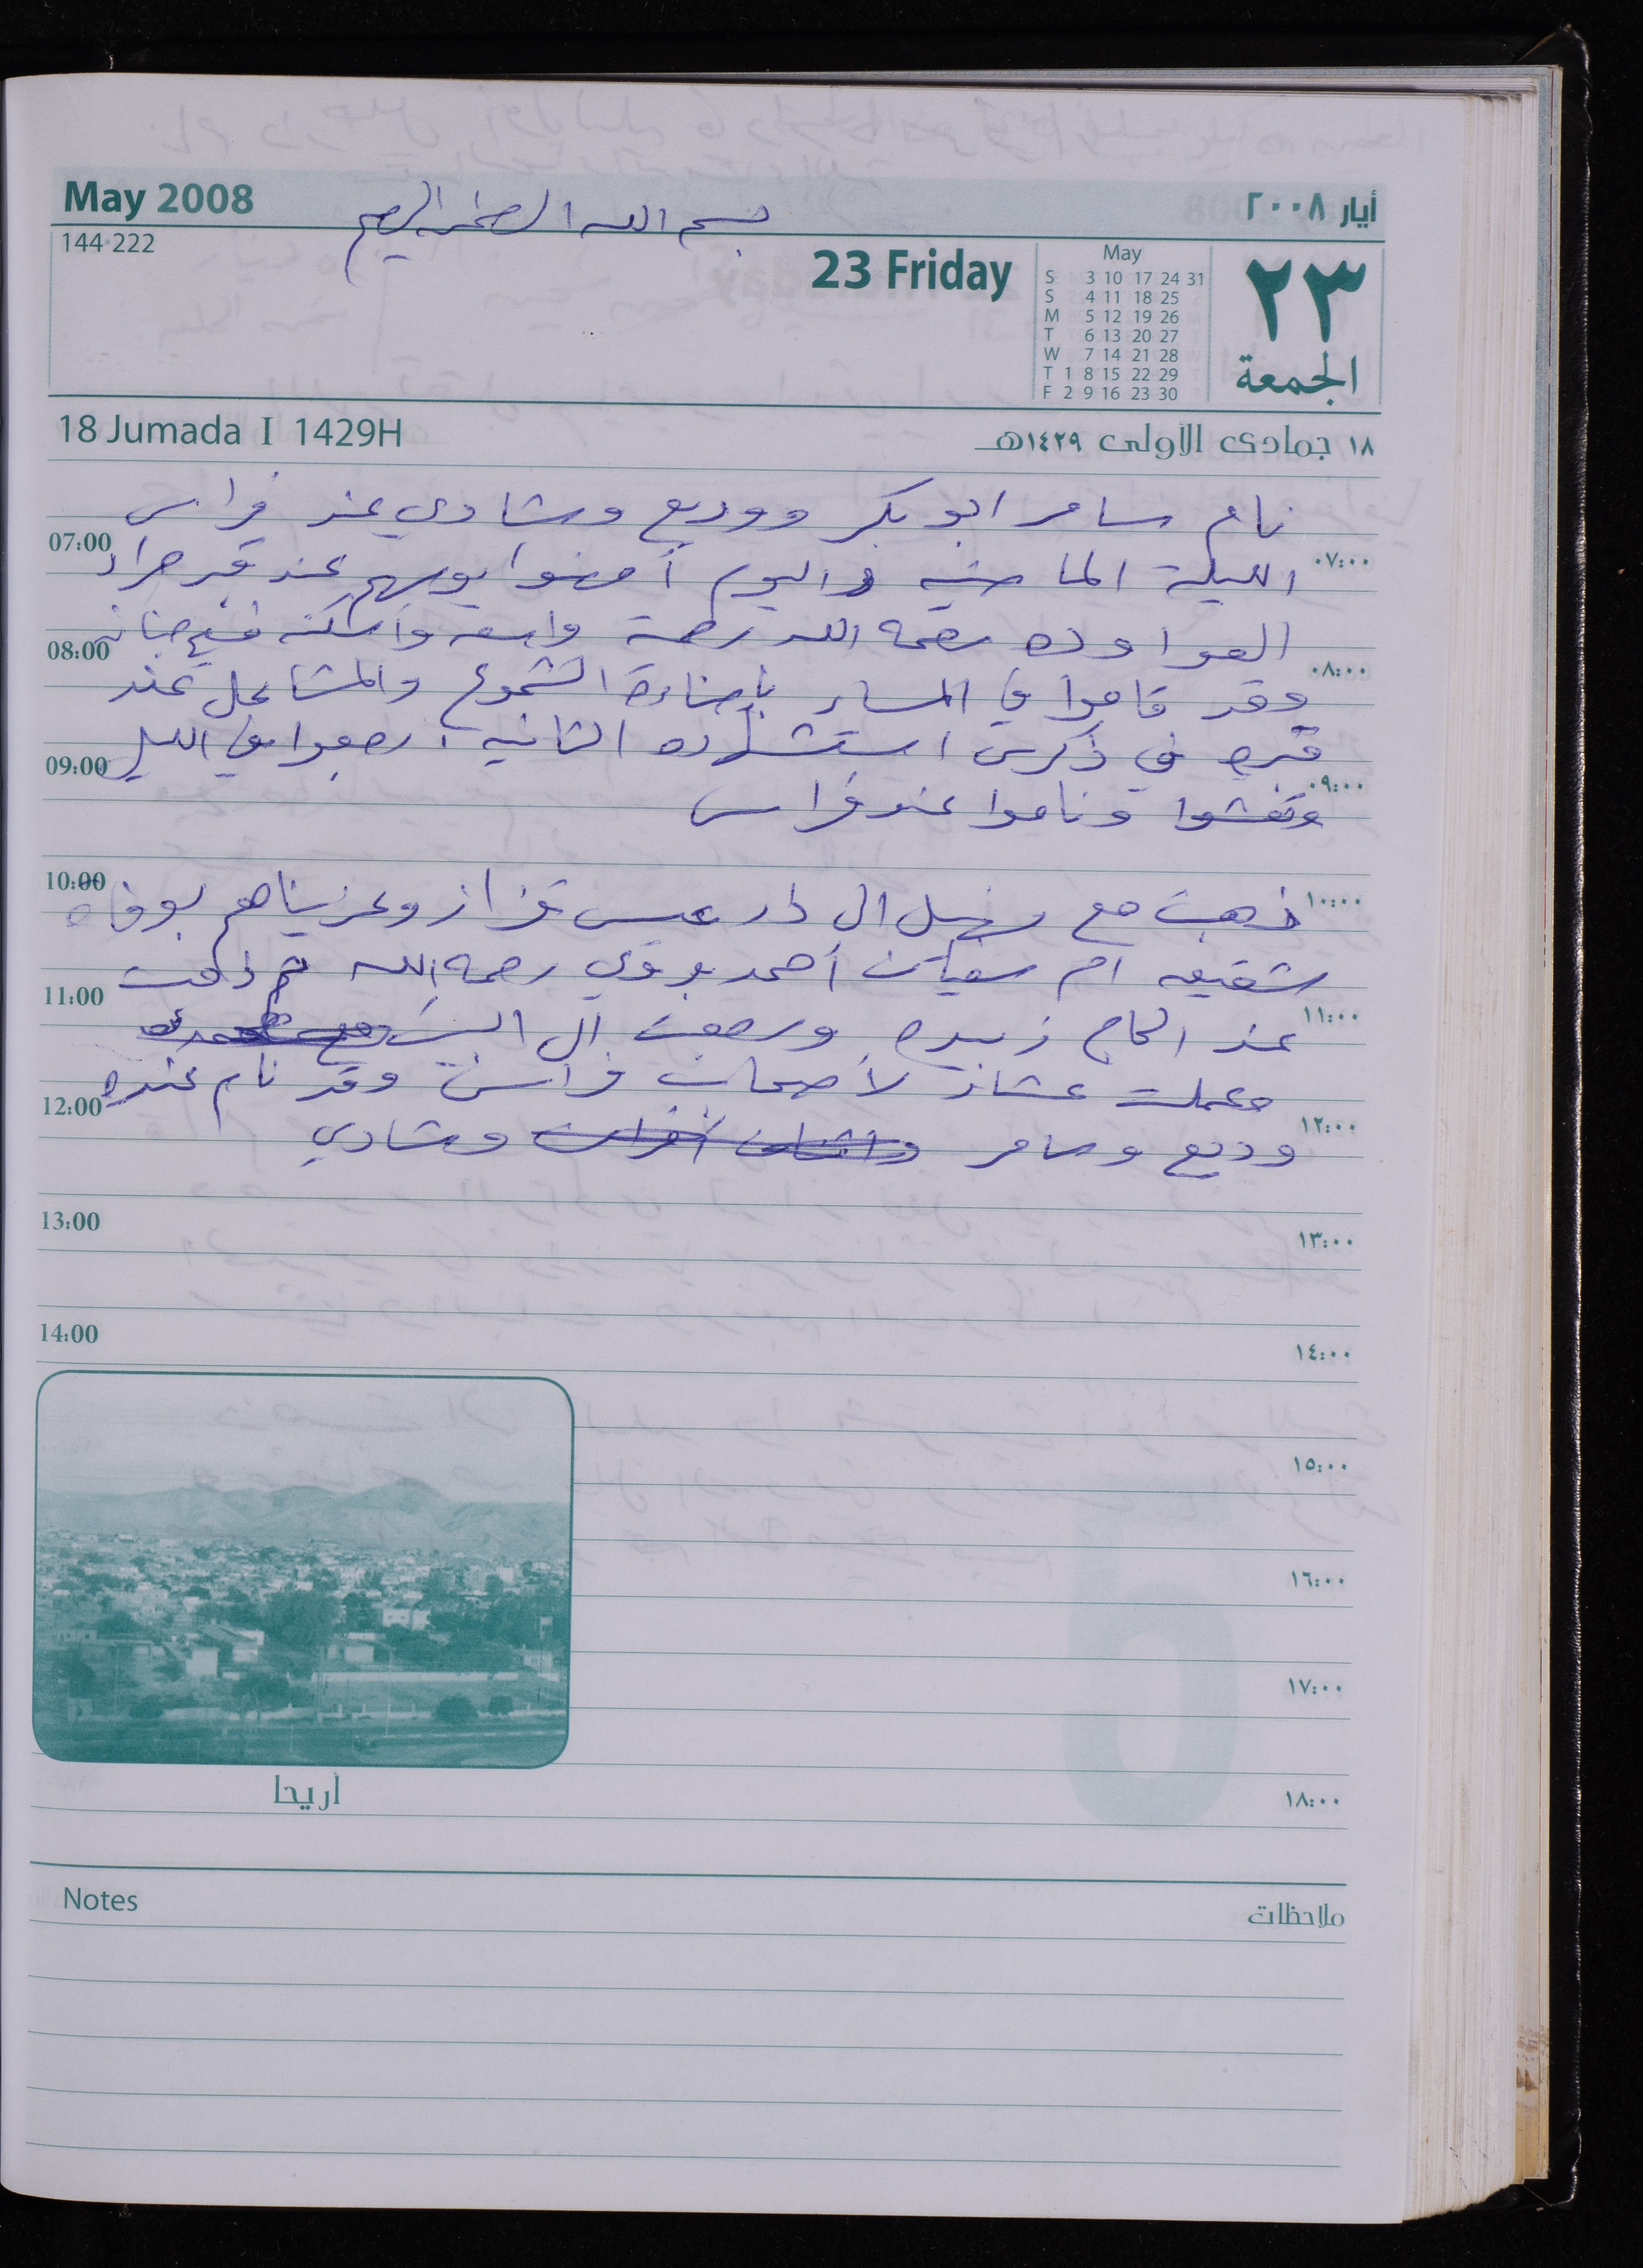 May 2008
بسم الله الرحمن الرحيم
أيار ٢٠٠٨
144-222
23 Friday
May
S 3 10 17 24 31
S 4 11 18 25
M 5 12 19 26
T 6 13 20 27
W 7 14 21 28
T 1 8 15 22 29
F 2 9 16 23 30
٢٣
الجمعة
18 Jumada I 1429H
١٨ جمادى الأولى ١٤٢٩هـ
نام سامر ابو بكر ووديع وشادي عند فراس
07:00
٠٧:٠٠
الليلة الماضيه واليوم أمضوا يومهم عند قبر مراد
العواوده رحمه الله رحمة واسعه وأسكنه فسيح جنانه
08:00
٠٨:٠٠
وقد قاموا في المساء بإضاءة الشموع والمشاعل عند
قبره في ذكرى استشهاده الثانيه ! رجعوا في الليل
09:00
٠٩:٠٠
وتعشوا وناموا عند فراس
10:00
١٠:٠٠
ذهبت مع نهيل الى دار عيسى قزاز وعزيناهم بوفاة
شقيقه ام سفيان أحمد برقوي رحمه الله ثم ذهبت
11:00
١١:٠٠
عند الحاج زبيده ورجعت الى البيت
وعملت عشاء لأصحاب فراس وقد نام عنده
12:00
١٢:٠٠
وديع وسامر وشادي
13:00
١٣:٠٠
14:00
١٤:٠٠
١٥:٠٠
١٦:٠٠
١٧:٠٠
أريحا
١٨:٠٠
Notes
ملاحظات